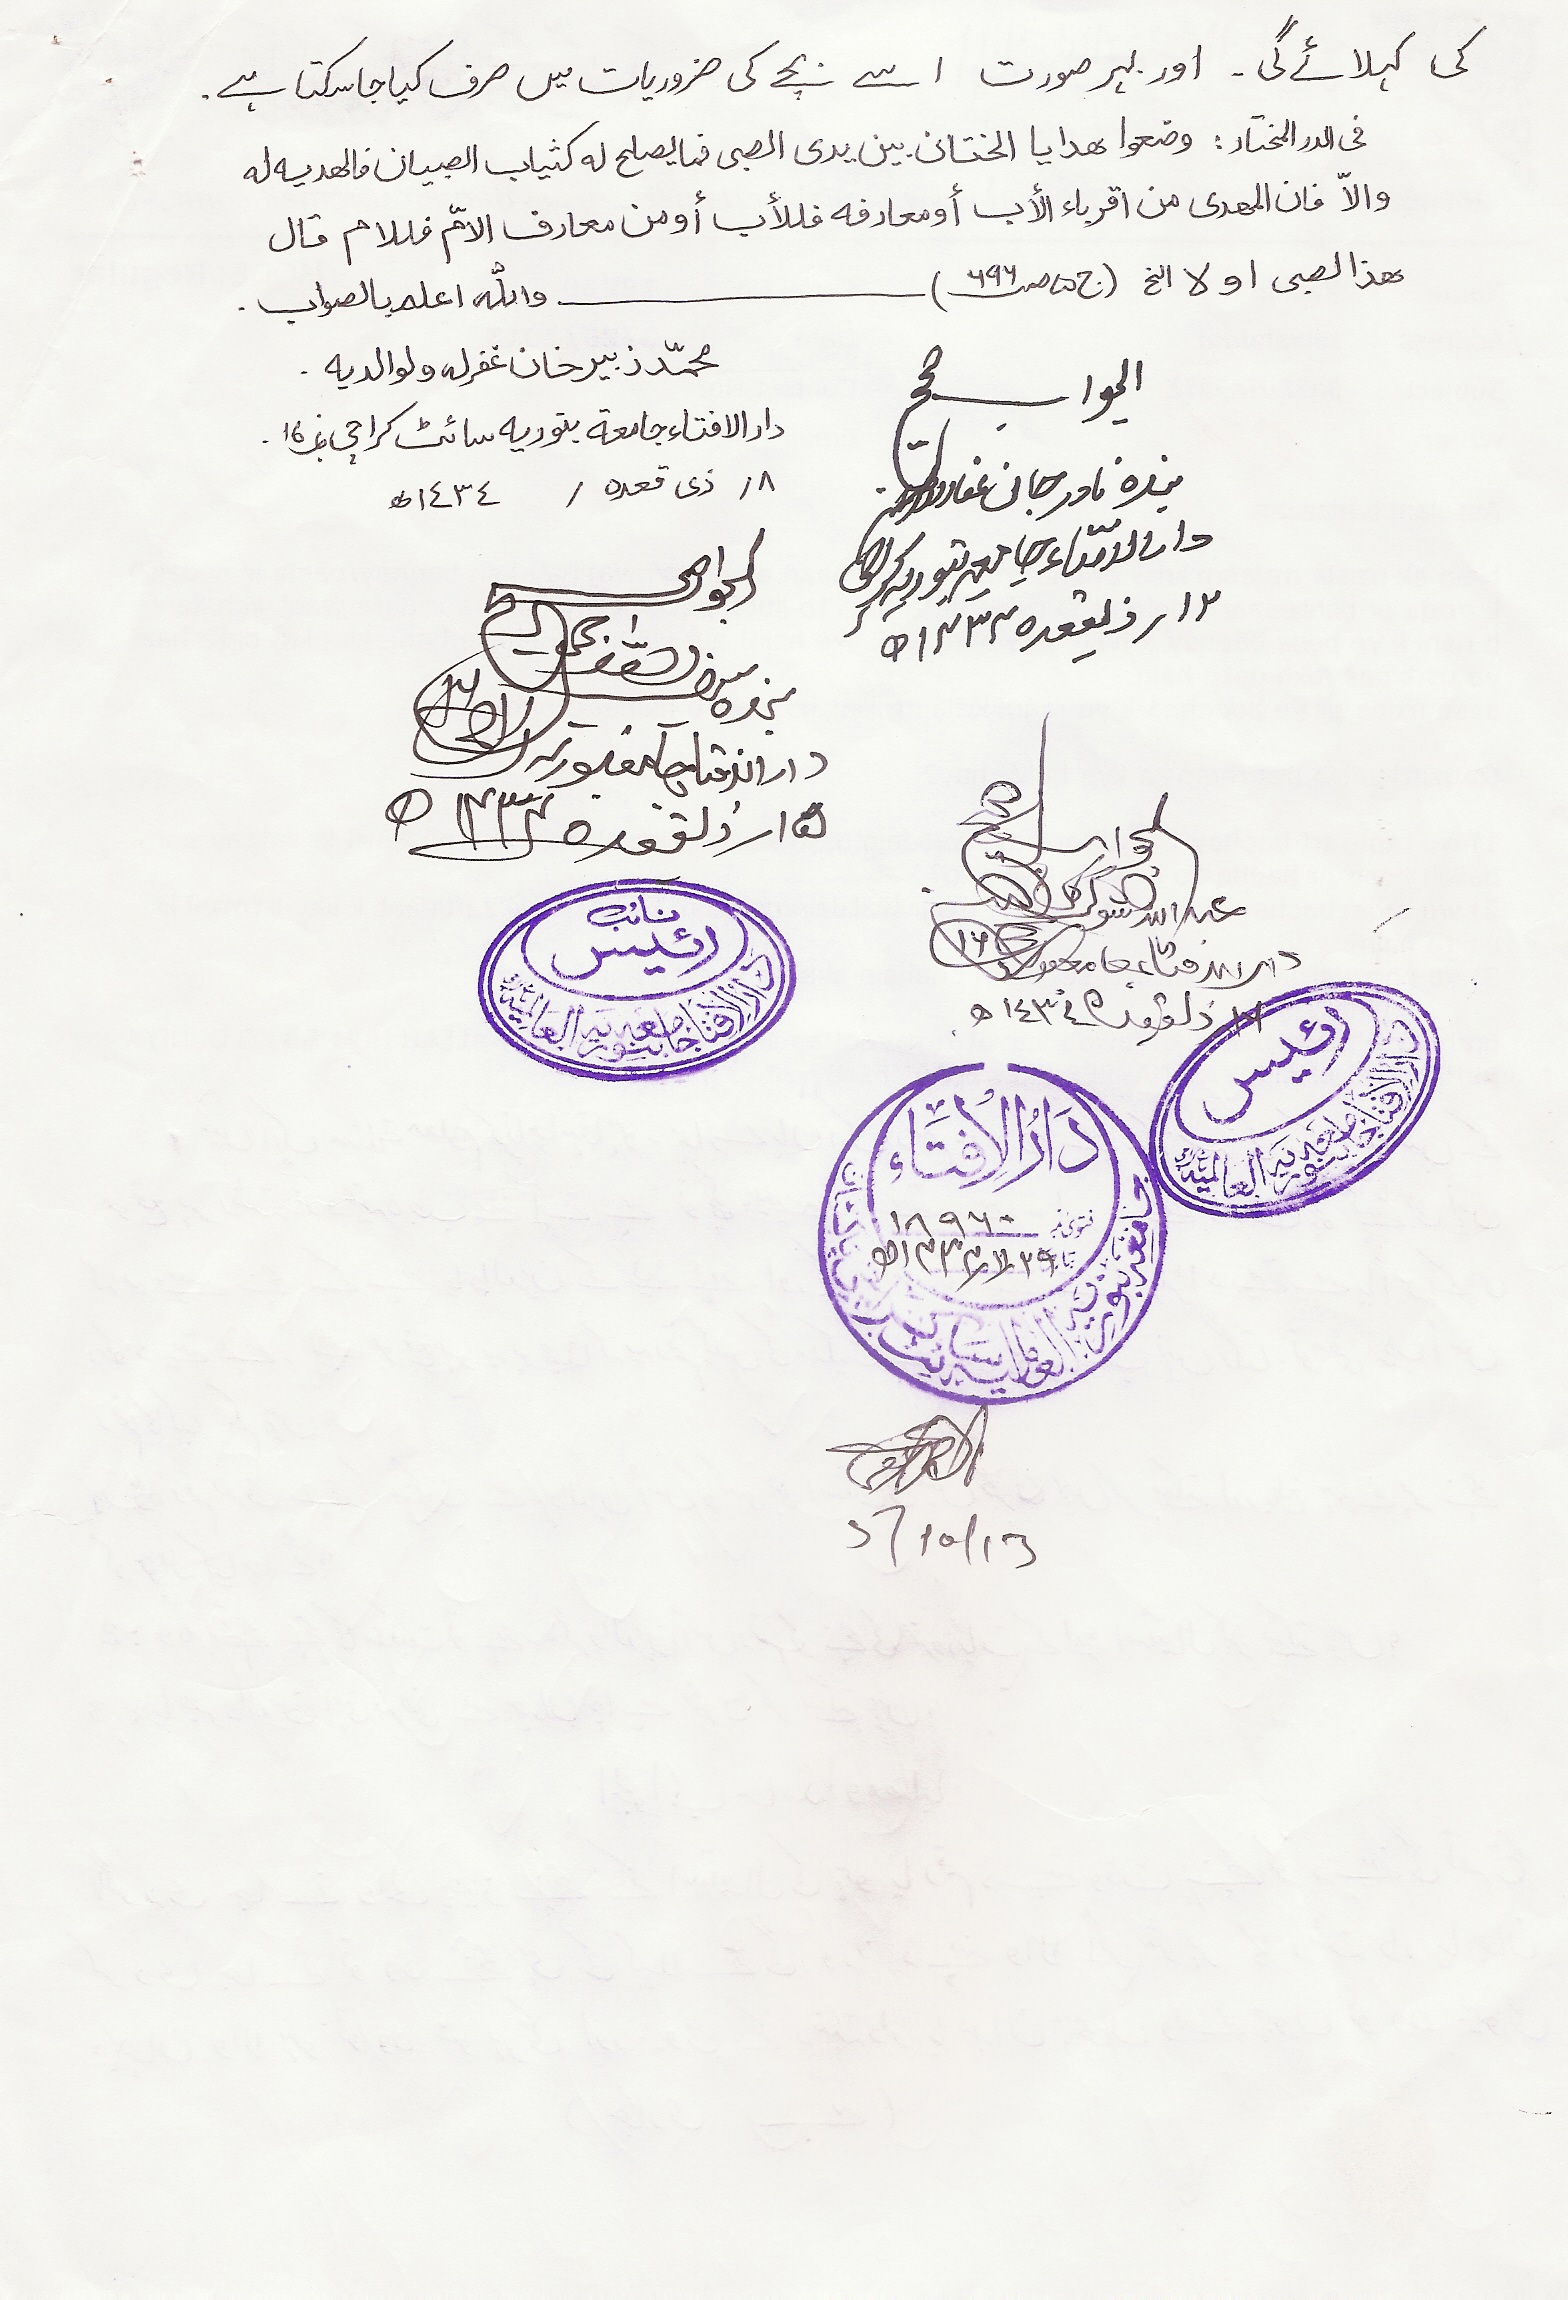 کی کہلائے گی۔ اور بہر صورت اسے بچے کی ضروریات میں صرف کیا جا سکتا ہے۔
فی الدر المختار: وضعوا هدايا الختان بين يدى الصبى فما يصلح له كثياب الصبيان فالهديه له
والاّ فان المهدى من اقرباء الأب أو معارفه فللأب أو من معارف الامّ فللام قال
هذا لصبى او لا الخ (ج ۵ ص ۶۹۶) والله اعلم بالصواب۔
محمّد زبیر خان غفرلہ ولوالدیه۔
دار الافتاء جامعة بنوریه سائٹ کراچی نمبر ۱۶۔
۸/ ذی قعدہ / ١٤٣٤ھ
الجواب صحیح
بندہ نادر جان
دار الافتاء جامعہ بنوریہ کراچی
۱۲/ ذیقعدہ ۱۴۳۴ھ
الجواب صحیح
بندہ
دار الافتاء جامعہ بنوریہ
۱۵/ ذلقعدہ ۱۴۳۴ھ
الجواب صحیح
عبداللہ شوکت
دار الافتاء جامعہ بنوریہ
ذلقعدہ ١٤٣٤ھ
نائب
رئیس
دار الافتاء جامعہ بنوریہ العالمیة
رئیس
دار الافتاء جامعہ بنوریہ العالمیة
دَارُ الْاِفْتَاء
فتویٰ نمبر ۱۸۹۶۰
۲۹/۱۱/۱۴۳۴ھ
جامعہ بنوریہ العالمیہ سائٹ کراچی
5/10/13